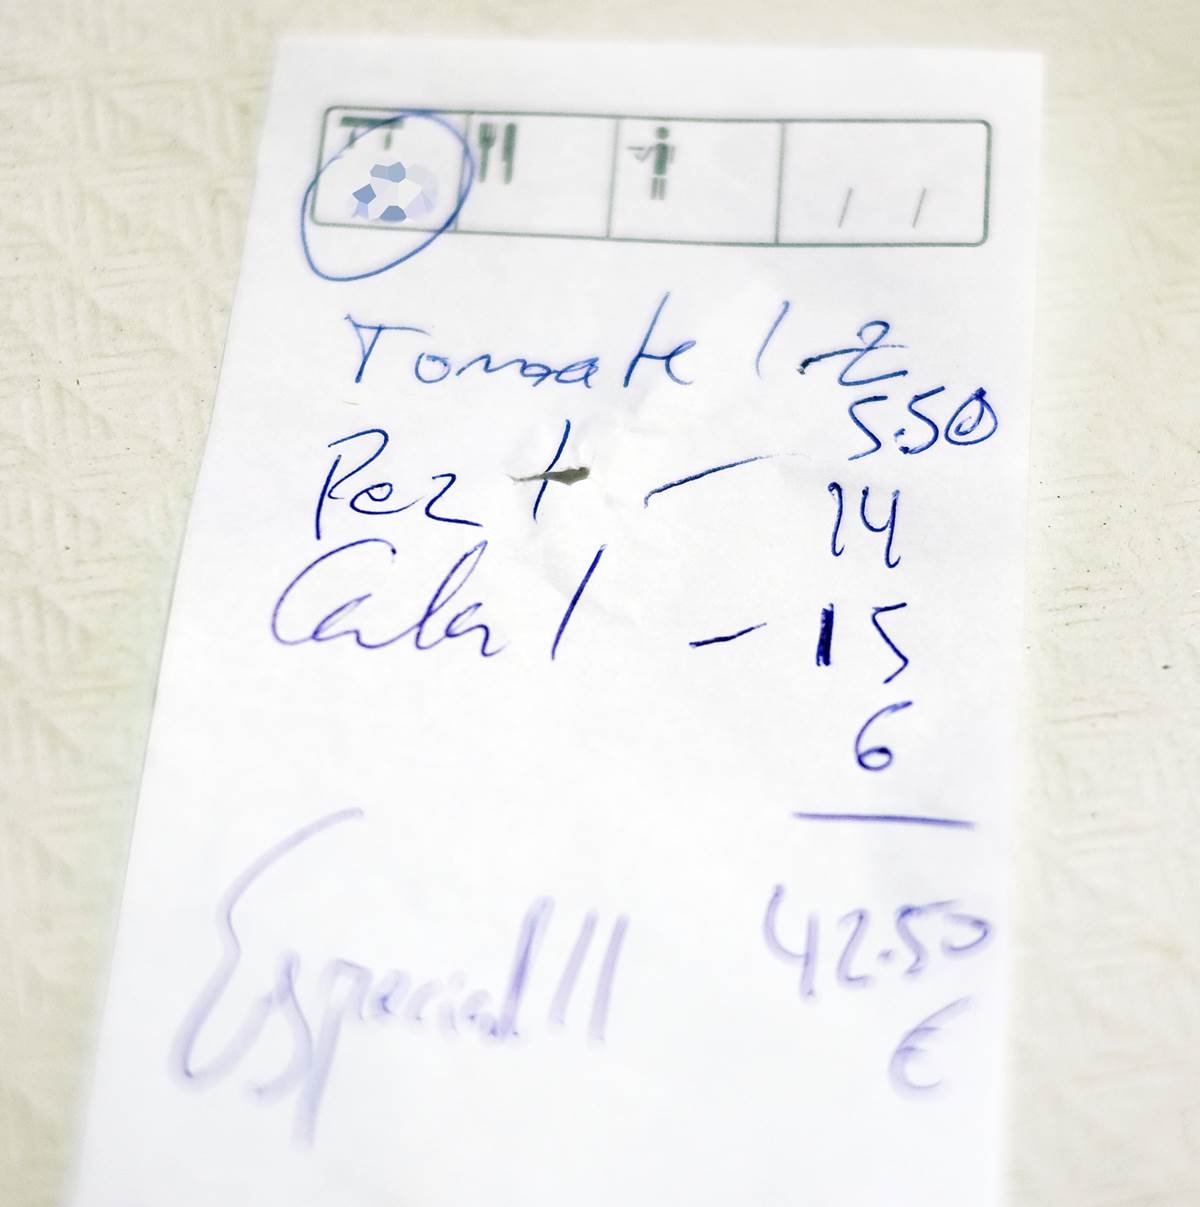 / /
Tomate 1 - 2
5.50
Pez 1 — 14
Cala 1 - 15
6
42.50
Especial 11
€